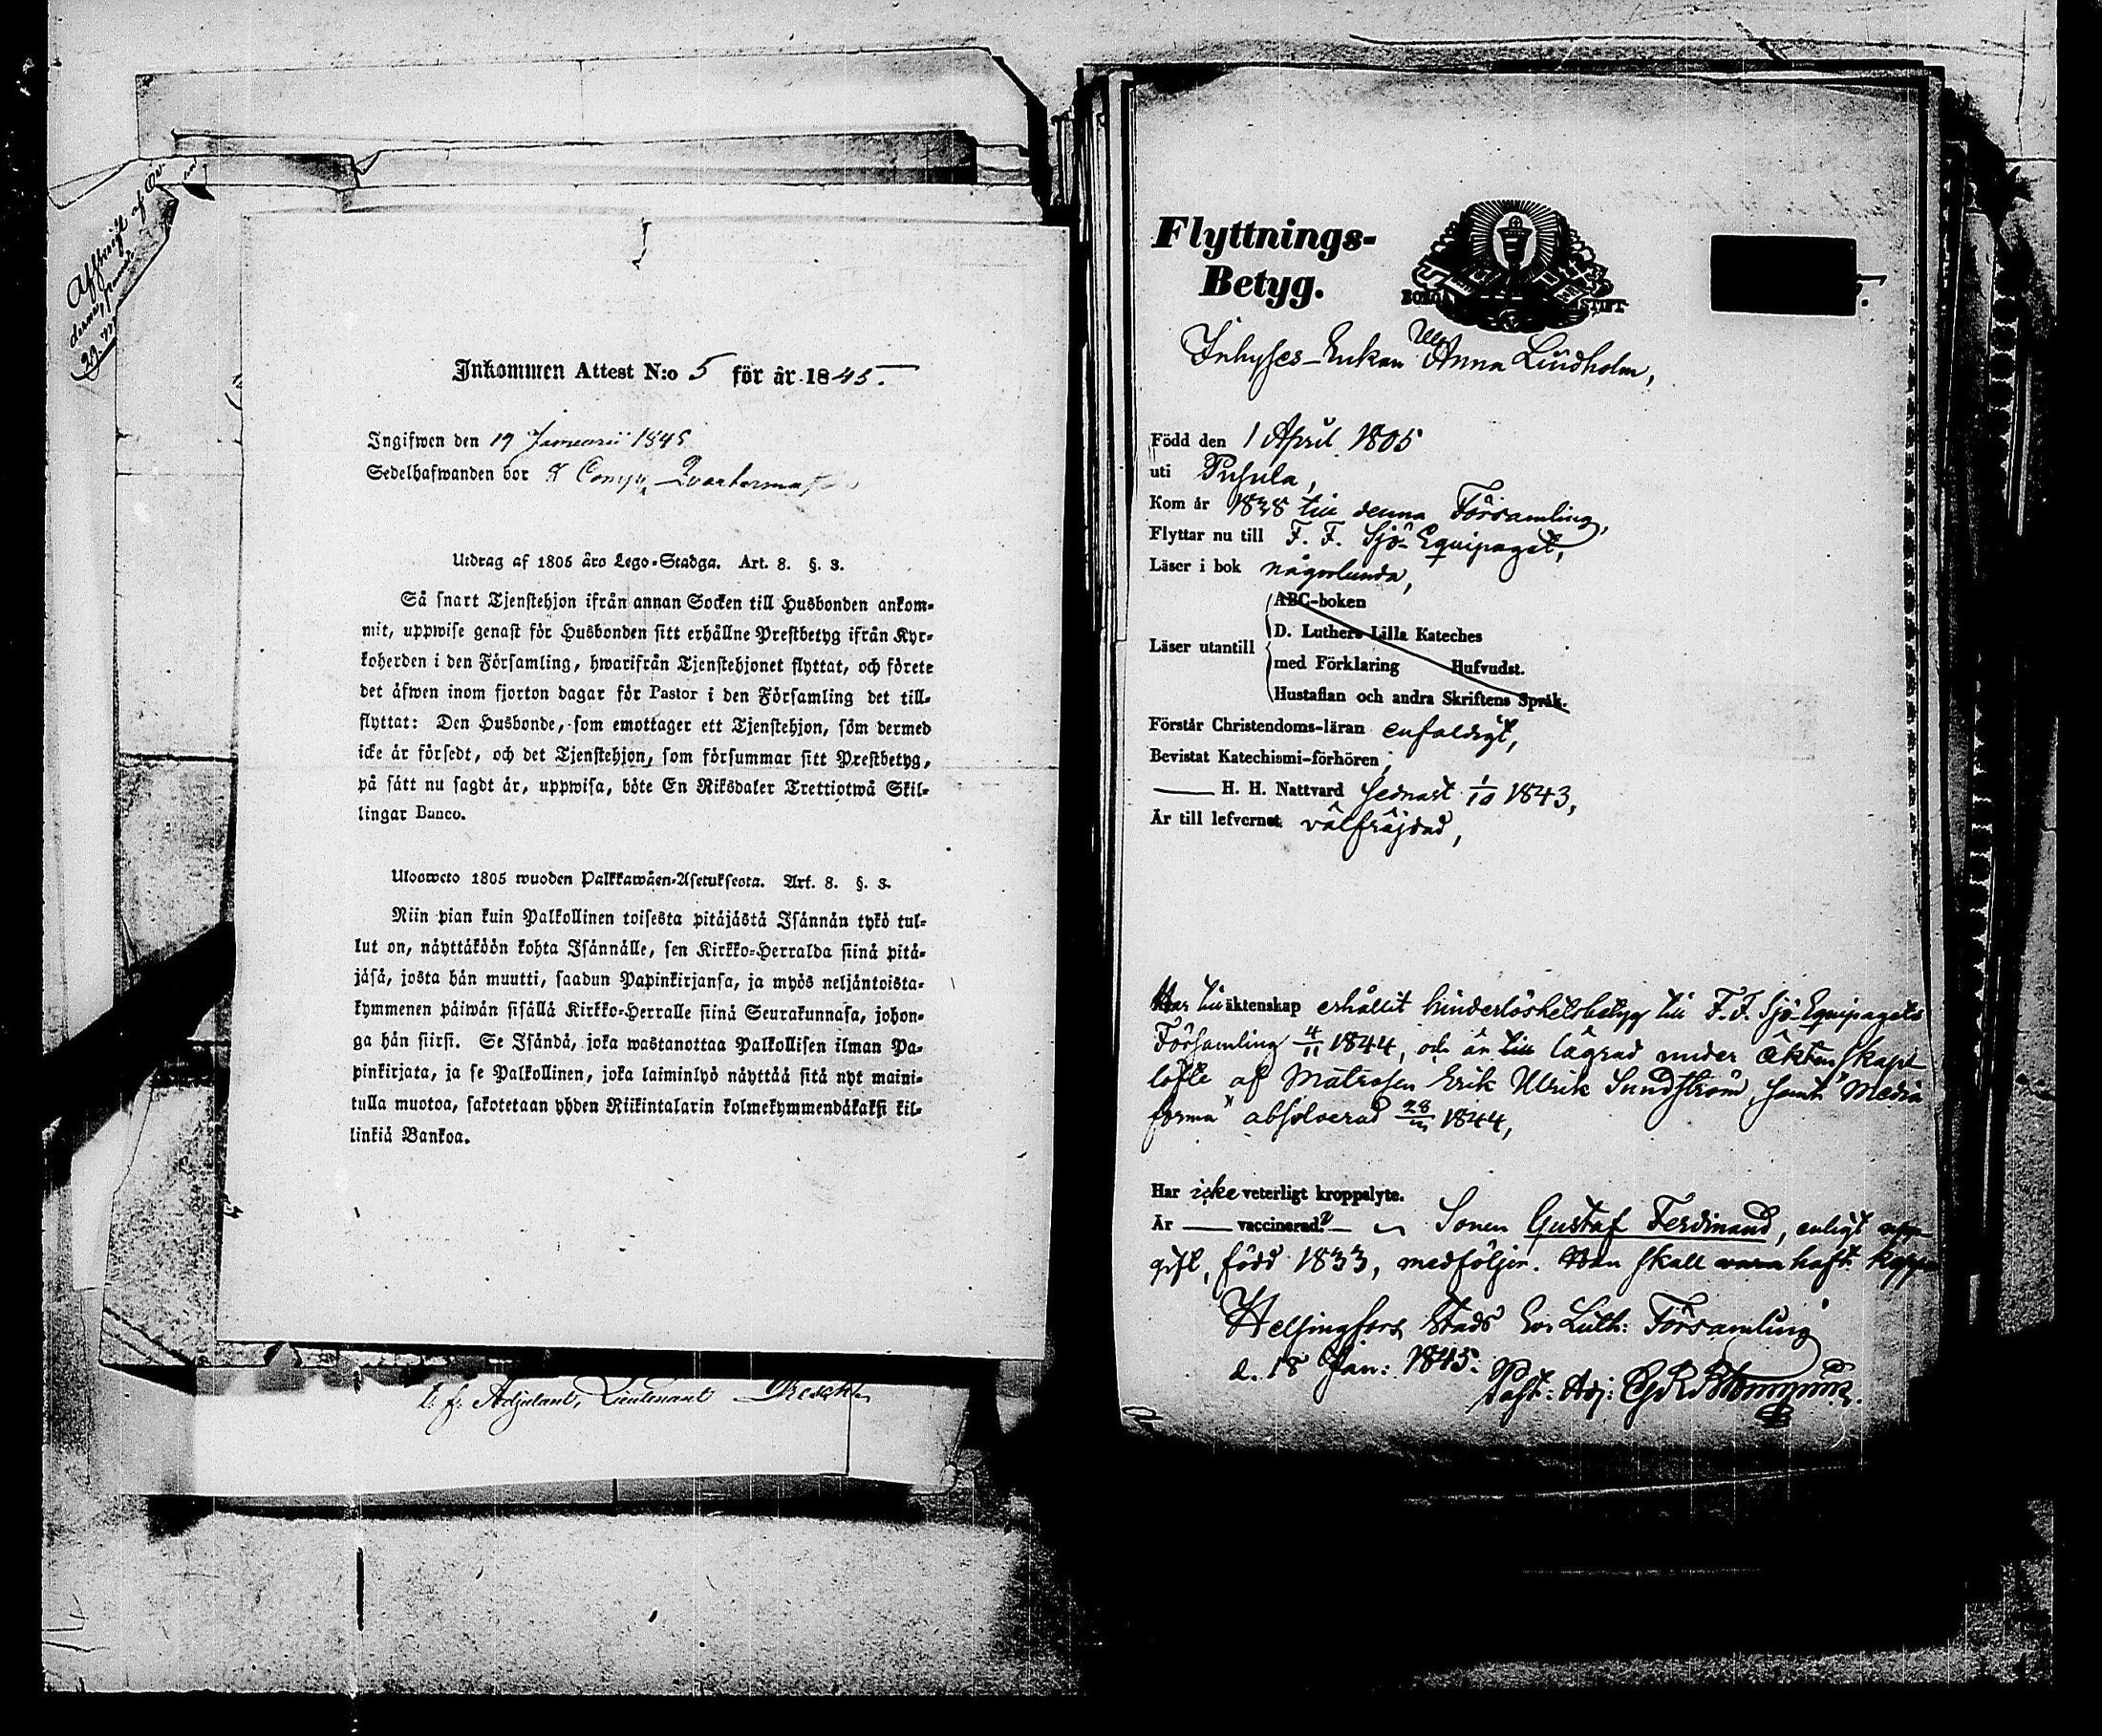 Afskrift af
Inkommen Attest N:o 5 för år 1845.
Ingifwen den 19 Januarii 1845
Sedelhafwanden bor Comp:
Utdrag af 1805 års Lego-Stadga. Art. 8. §. 3.
Så snart Tjenstehjon ifrån annan Socken till Husbonden ankom-
mit, uppwise genast för Husbonden sitt erhållne Prestbetyg ifrån Kyr-
koherden i den Församling, hwarifrån Tjenstehjonet flyttat, och förete
det äfwen inom fjorton dagar för Pastor i den Församling det till-
flyttat: Den Husbonde, som emottager ett Tjenstehjon, som dermed
icke är försedt, och det Tjenstehjon, som försummar sitt Prestbetyg,
på sätt nu sagdt är, uppwisa, böte En Riksdaler Trettiotwå Skil-
lingar Banco.
Ulosweto 1805 wuoden Palkkawäen-Asetuksesta. Art. 8. §. 3.
Niin pian kuin Palkollinen toisesta pitäjästä Isännän tykö tul-
lut on, näyttäköön kohta Isännälle, sen Kirkko-Herralda siinä pitä-
jäsä, josta hän muutti, saadun Papinkirjansa, ja myös neljäntoista-
kymmenen päiwän sisällä Kirkko-Herralle siinä Seurakunnasa, johon-
ga hän siirsi. Se Isändä, joka wastanottaa Palkollisen ilman Pa-
pinkirjata, ja se Palkollinen, joka laiminlyö näyttää sitä nyt maini-
tulla muotoa, sakotetaan yhden Riikintalarin kolmekymmendäkaksi kil-
linkiä Bankoa.
t. f. Adjutant, Lieutenant
Flyttnings-
Betyg.
BORGÅ STIFT
Inhyses-Enkan Ulr. Anna Lindholm,
Född den 1 April 1805
uti Pusula,
Kom år 1838 till denna Församling,
Flyttar nu till F. F. Sjö-Equipaget,
Läser i bok någorlunda,
ABC-boken
D. Luthers Lilla Kateches
Läser utantill
med Förklaring Hufvudst.
Hustaflan och andra Skriftens Språk.
Förstår Christendoms-läran enfaldigt,
Bevistat Katechismi-förhören
H. H. Nattvard sednast 1/10 1843,
Är till lefvernet välfräjdad,
Har till äktenskap erhållit hinderlöshetsbetyg till F. F. Sjö-Equipagets
Församling 4/11 1844, och är till lägrad under äktenskaps
löfte af Matrosen Erik Ulrik Sundström, samt "Media
forma" absolverad 28/ 1844,
Har icke veterligt kroppslyte.
Är vaccinerad? Sonen Gustaf Ferdinand, enligt upp-
gift, född 1833, medföljer. Han skall vara haft koppor
Helsingfors Stads Ev. Luth: Församling
d. 18 Jan: 1845.
Past: Adj: